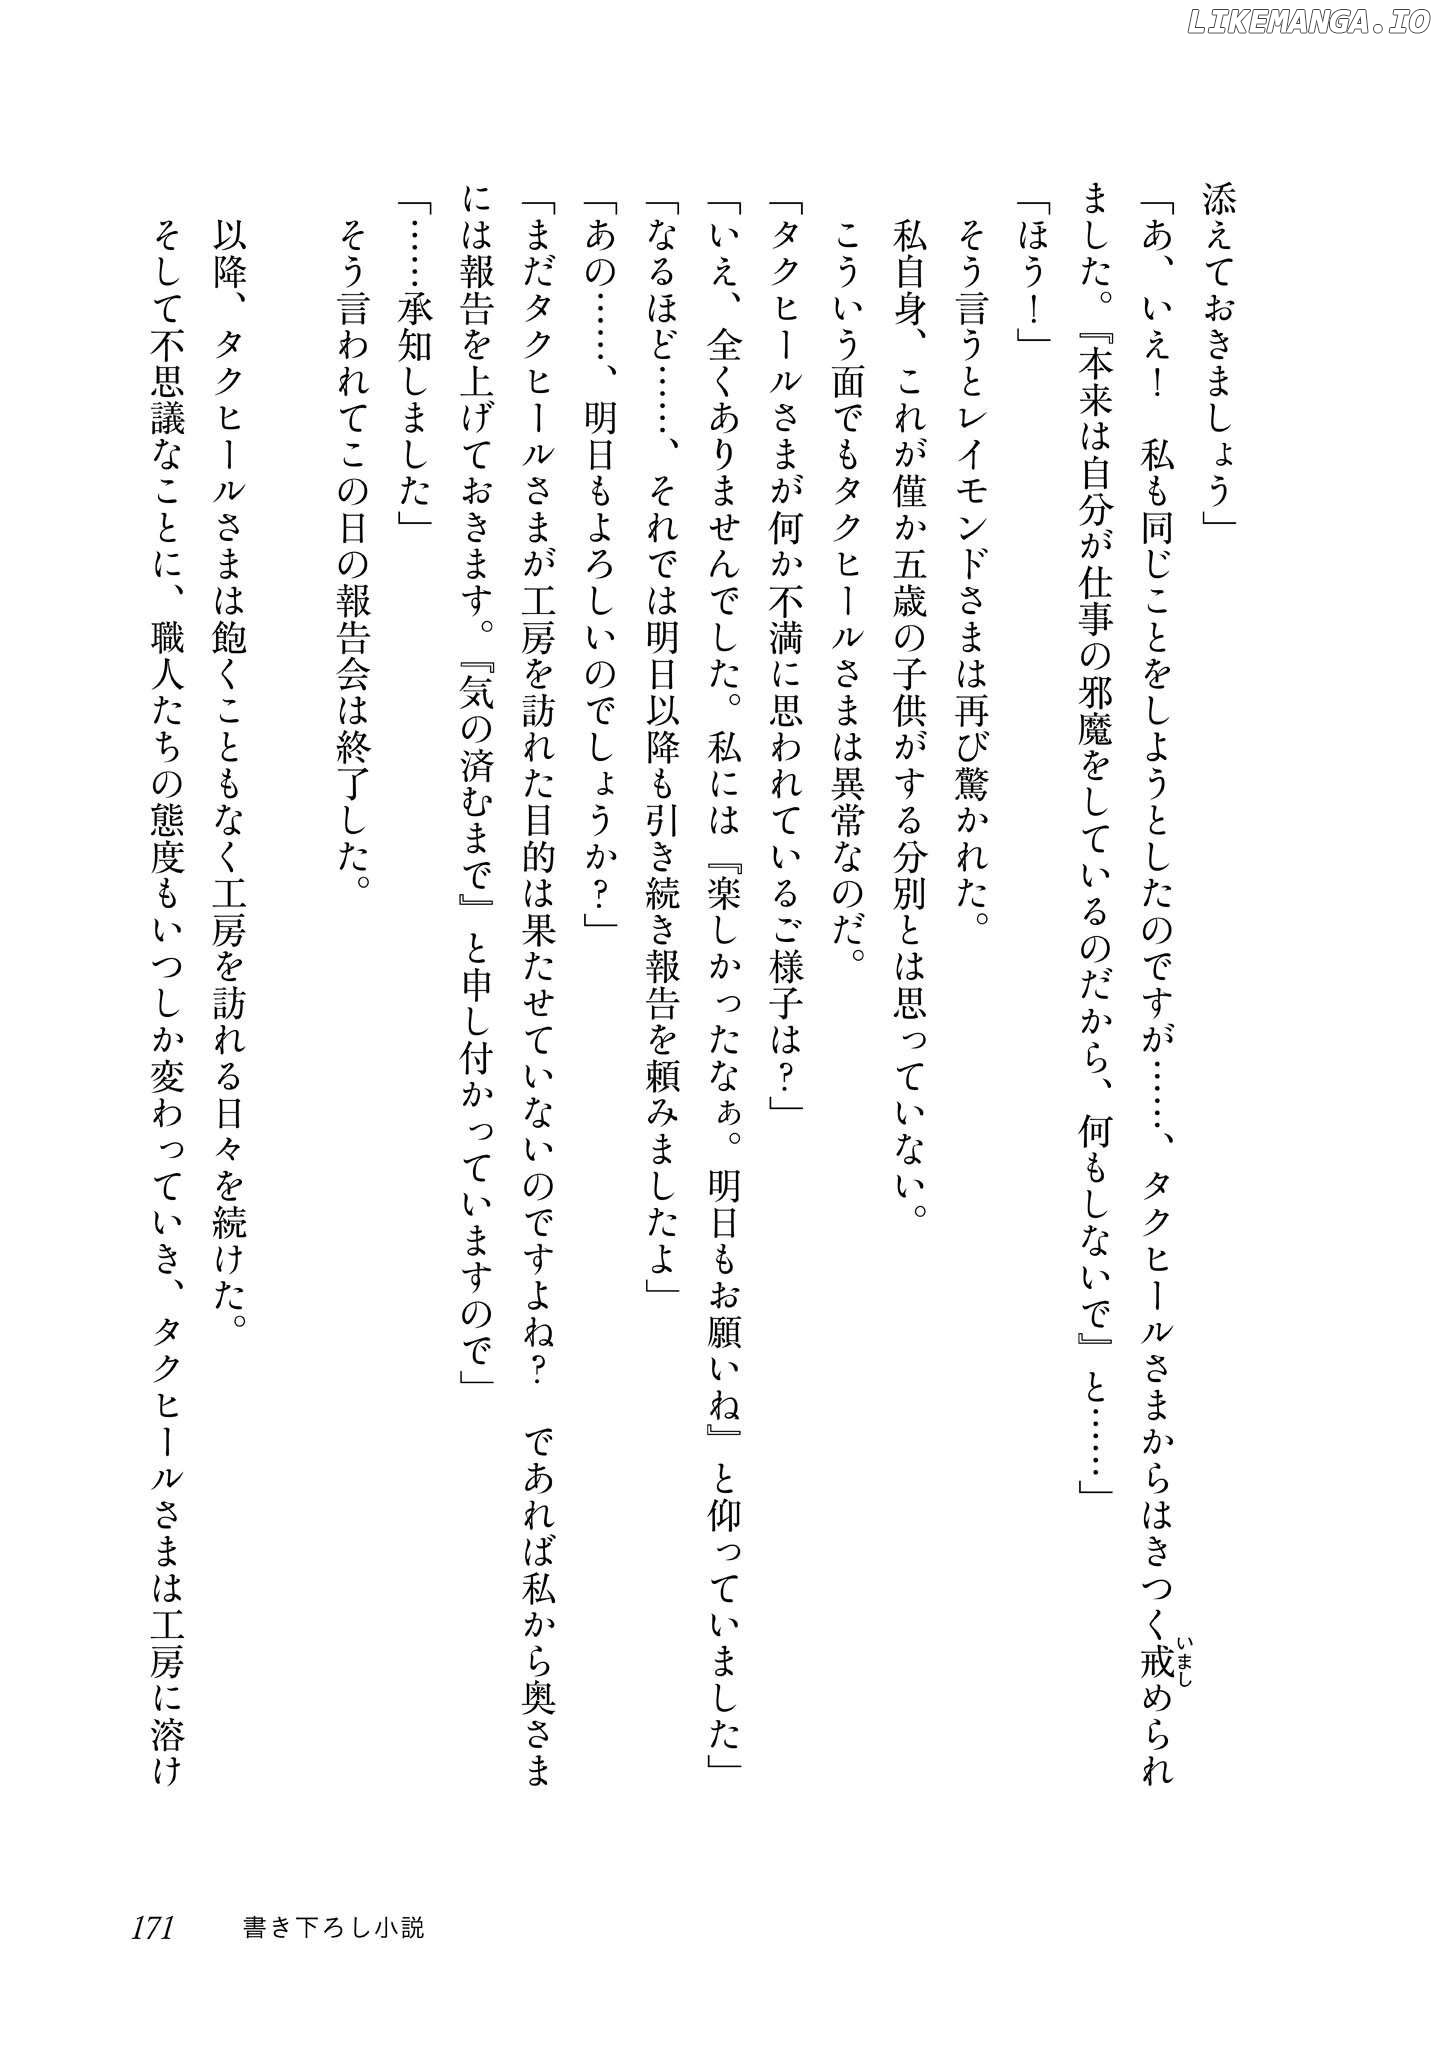 LIKEMANGA.IO
添えておきましょう」
「あ、いえ！　私も同じことをしようとしたのですが……、タクヒールさまからはきつく戒められ
いまし
ました。『本来は自分が仕事の邪魔をしているのだから、何もしないで』と……」
「ほう！」
そう言うとレイモンドさまは再び驚かれた。
私自身、これが僅か五歳の子供がする分別とは思っていない。
こういう面でもタクヒールさまは異常なのだ。
「タクヒールさまが何か不満に思われているご様子は？」
「いえ、全くありませんでした。私には『楽しかったなぁ。明日もお願いね』と仰っていました」
「なるほど……、それでは明日以降も引き続き報告を頼みましたよ」
「あの……、明日もよろしいのでしょうか？」
「まだタクヒールさまが工房を訪れた目的は果たせていないのですよね？　であれば私から奥さま
には報告を上げておきます。『気の済むまで』と申し付かっていますので」
「……承知しました」
そう言われてこの日の報告会は終了した。
以降、タクヒールさまは飽くこともなく工房を訪れる日々を続けた。
そして不思議なことに、職人たちの態度もいつしか変わっていき、タクヒールさまは工房に溶け
171
書き下ろし小説